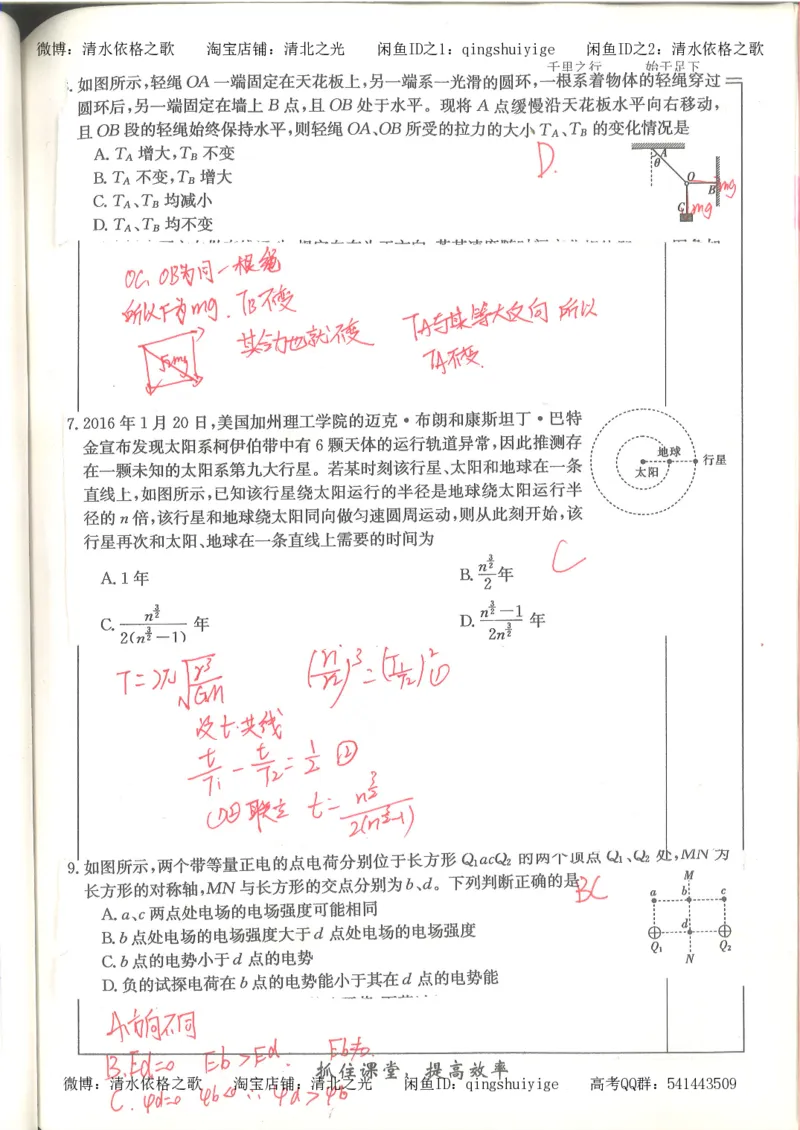 微博：清水依格之歌 淘宝店铺：清北之光 闲鱼ID之1：qingshuiyige 闲鱼ID之2：清水依格之歌
千里之行 始于足下
如图所示,轻绳OA一端固定在天花板上,另一端系一光滑的圆环,一根系着物体的轻绳穿过
圆环后,另一端固定在墙上B点,且OB处于水平。现将A点缓慢沿天花板水平向右移动,
且OB段的轻绳始终保持水平,则轻绳OA、OB所受的拉力的大小T_A、T_B的变化情况是
D.
A. T_A增大,T_B不变
B. T_A不变,T_B增大
C. T_A、T_B均减小
D. T_A、T_B均不变
A
θ
O
B
mg
C
mg
OC、OB为同一根绳
所以F为mg.T_B不变
其合力也就不变
T_A与其等大反向 所以
T_A不变.
√2mg
7. 2016年1月20日,美国加州理工学院的迈克·布朗和康斯坦丁·巴特
金宣布发现太阳系柯伊伯带中有6颗天体的运行轨道异常,因此推测存
在一颗未知的太阳系第九大行星。若某时刻该行星、太阳和地球在一条
直线上,如图所示,已知该行星绕太阳运行的半径是地球绕太阳运行半
径的n倍,该行星和地球绕太阳同向做匀速圆周运动,则从此刻开始,该
行星再次和太阳、地球在一条直线上需要的时间为
地球
行星
太阳
C
A. 1年
B. n^{3/2}/2 年
C. n^{3/2}/2(n^{3/2}-1) 年
D. n^{3/2}-1/2n^{3/2} 年
T=2π√(r³/GM) (r1/r2)³=(T1/T2)²①
设t共线
t/T1-t/T2=1/2 ②
①②联立 t=n^{3/2}/2(n^{3/2}-1)
9. 如图所示,两个带等量正电的点电荷分别位于长方形Q₁acQ₂的两个顶点Q₁、Q₂处,MN为
长方形的对称轴,MN与长方形的交点分别为b、d。下列判断正确的是
BC
A. a、c两点处电场的电场强度可能相同
B. b点处电场的电场强度大于d点处电场的电场强度
C. b点的电势小于d点的电势
D. 负的试探电荷在b点的电势能小于其在d点的电势能
M
a b c
d
Q₁ Q₂
N
A.方向不同
B.Ed=0 Eb>Ed.
抓住课堂，提高效率
微博：清水依格之歌 淘宝店铺：清北之光 闲鱼ID：qingshuiyige 高考QQ群：541443509
C. φd=0 φb<0 ∴ φd>φb